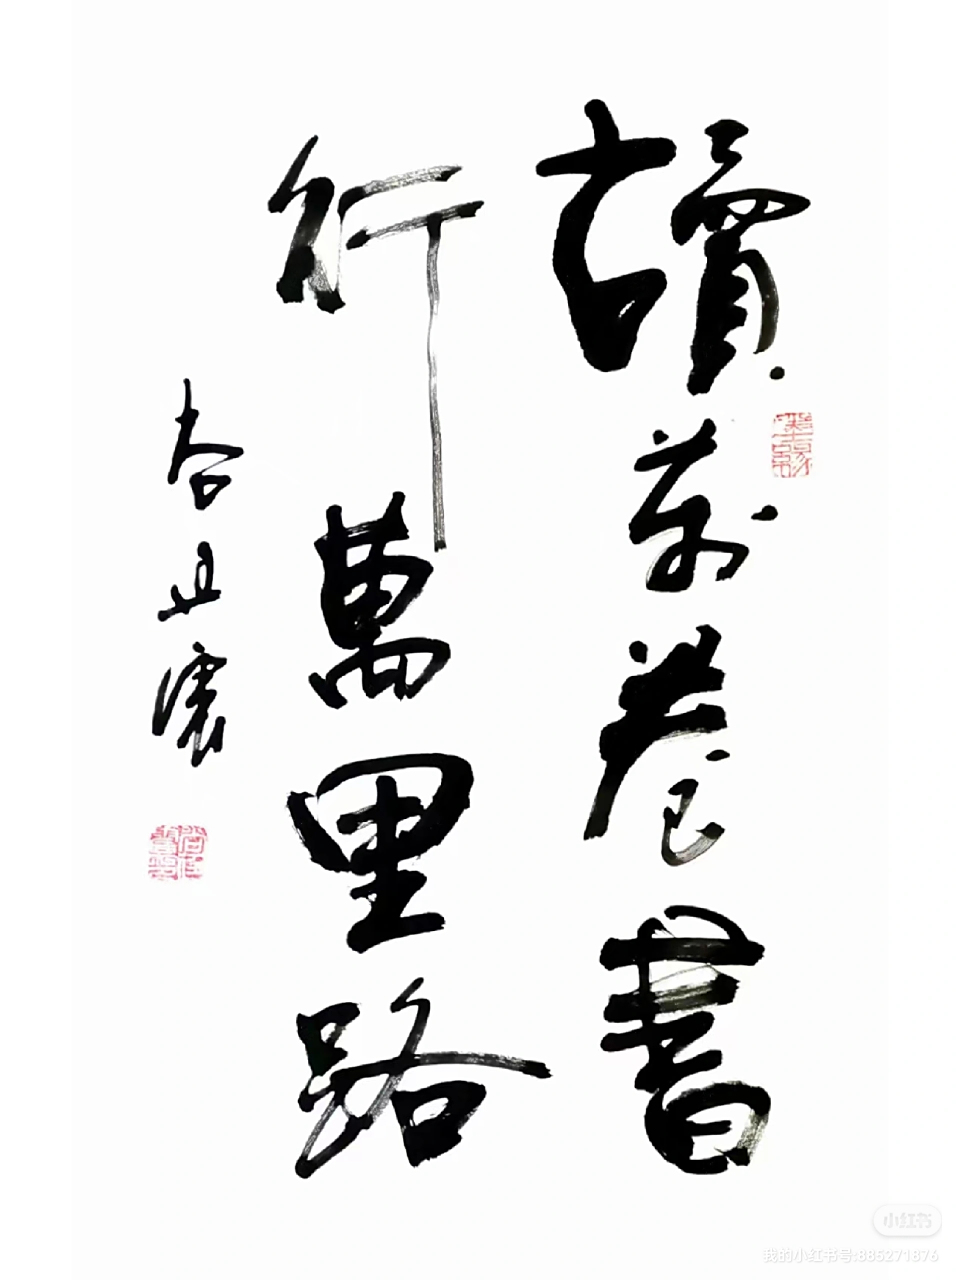 讀萬卷書
行萬里路
小红书
我的小红书号:885271876